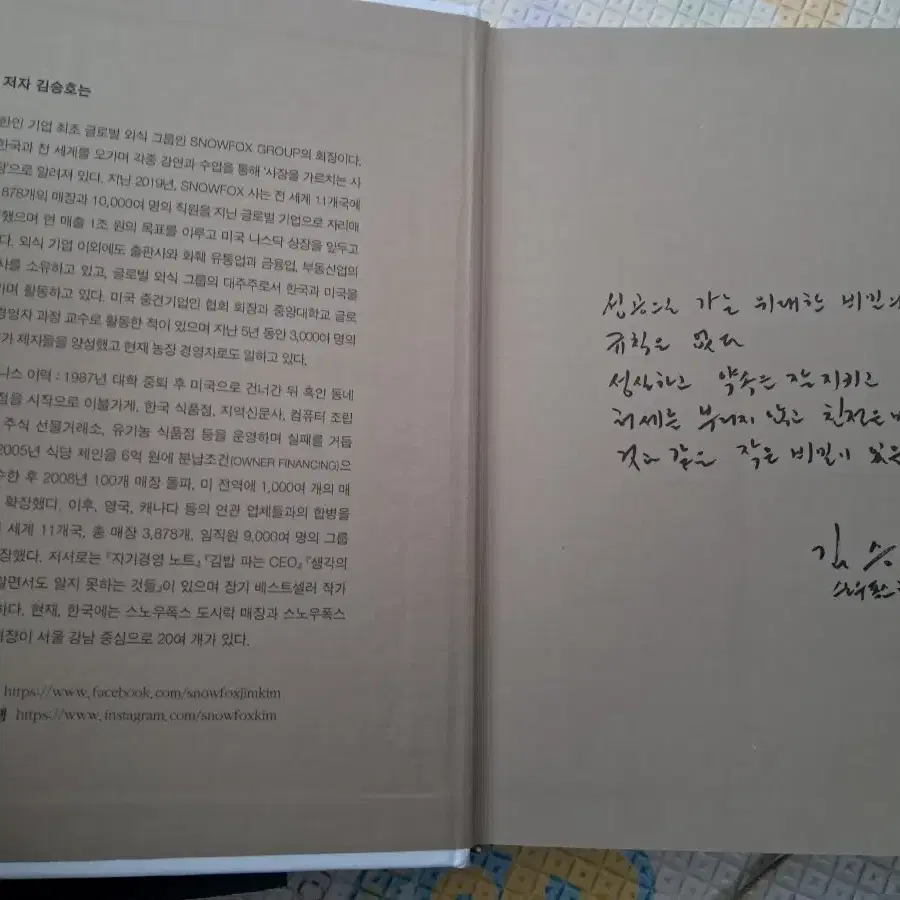 저자 김승호는
한인 기업 최초 글로벌 외식 그룹인 SNOWFOX GROUP의 회장이다.
한국과 전 세계를 오가며 각종 강연과 수업을 통해 '사장을 가르치는 사
장'으로 알려져 있다. 지난 2019년, SNOWFOX 사는 전 세계 11개국에
878개의 매장과 10,000여 명의 직원을 지닌 글로벌 기업으로 자리매
했으며 현 매출 1조 원의 목표를 이루고 미국 나스닥 상장을 앞두고
다. 외식 기업 이외에도 출판사와 화훼 유통업과 금융업, 부동산업의
사를 소유하고 있고, 글로벌 외식 그룹의 대주주로서 한국과 미국을
가며 활동하고 있다. 미국 중견기업인 협회 회장과 중앙대학교 글로
경영자 과정 교수로 활동한 적이 있으며 지난 5년 동안 3,000여 명의
가 제자들을 양성했고 현재 농장 경영자로도 일하고 있다.
니스 이력 : 1987년 대학 중퇴 후 미국으로 건너간 뒤 흑인 동네
점을 시작으로 이불가게, 한국 식품점, 지역신문사, 컴퓨터 조립
주식 선물거래소, 유기농 식품점 등을 운영하며 실패를 거듭
2005년 식당 체인을 6억 원에 분납조건(OWNER FINANCING)으
수한 후 2008년 100개 매장 돌파, 미 전역에 1,000여 개의 매
확장했다. 이후, 영국, 캐나다 등의 연관 업체들과의 합병을
세계 11개국, 총 매장 3,878개, 임직원 9,000여 명의 그룹
장했다. 저서로는 『자기경영 노트』 『김밥 파는 CEO』 『생각의
알면서도 알지 못하는 것들』이 있으며 장기 베스트셀러 작가
하다. 현재, 한국에는 스노우폭스 도시락 매장과 스노우폭스
매장이 서울 강남 중심으로 20여 개가 있다.
https://www.facebook.com/snowfoxjimkim
https://www.instagram.com/snowfoxkim
성공으로 가는 위대한 비밀
규칙은 없다
성실하고 약속은 잘 지키고
허세는 부리지 않고 친절은
것과 같은 작은 비밀이
김승
스노우폭스